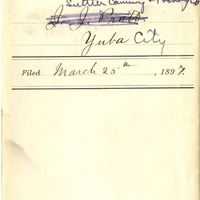 Sutter Canning &
J. J. Pratt
Yuba City
Filed March 25th, 1897.